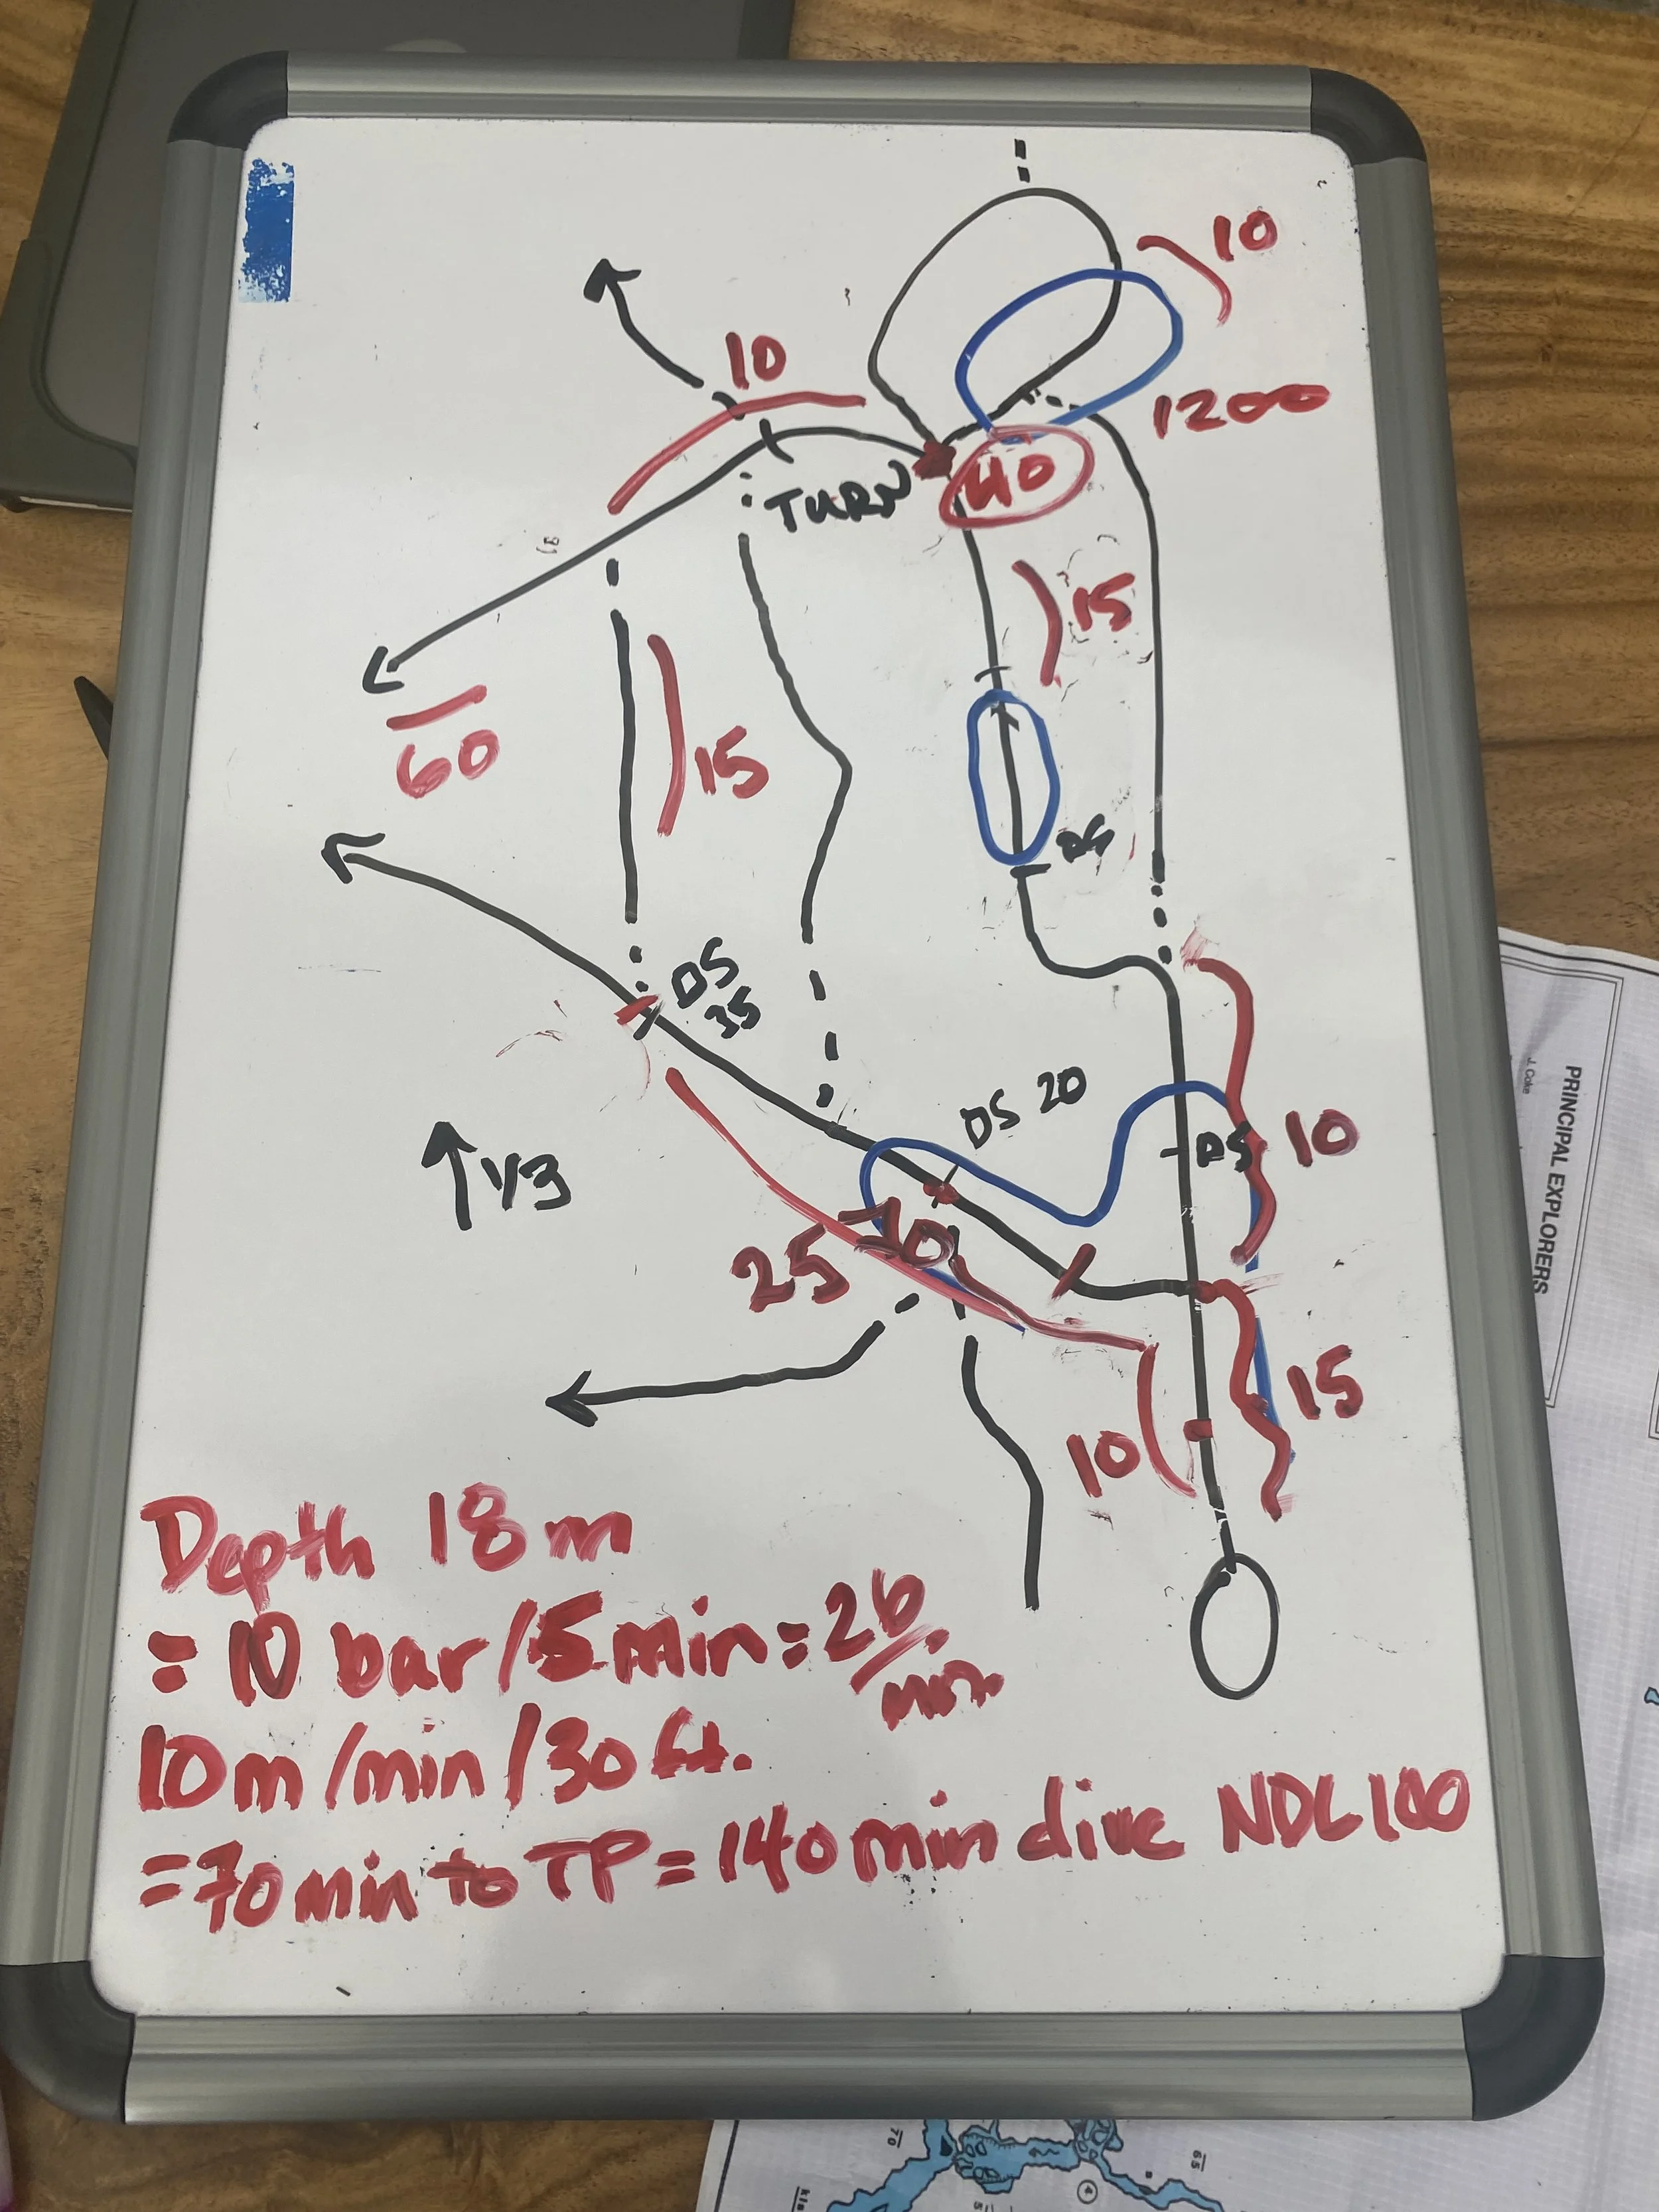 10
10
1200
TURN
40
15
60
15
DS
DS
35
DS 20
DS
10
1/3
25
10
15
10
Depth 18m
= 10 bar/5min = 26/min
10m/min/30ft.
=70min to TP = 140min dive NDL100
PRINCIPAL EXPLORERS
J. Coke
70
65
4